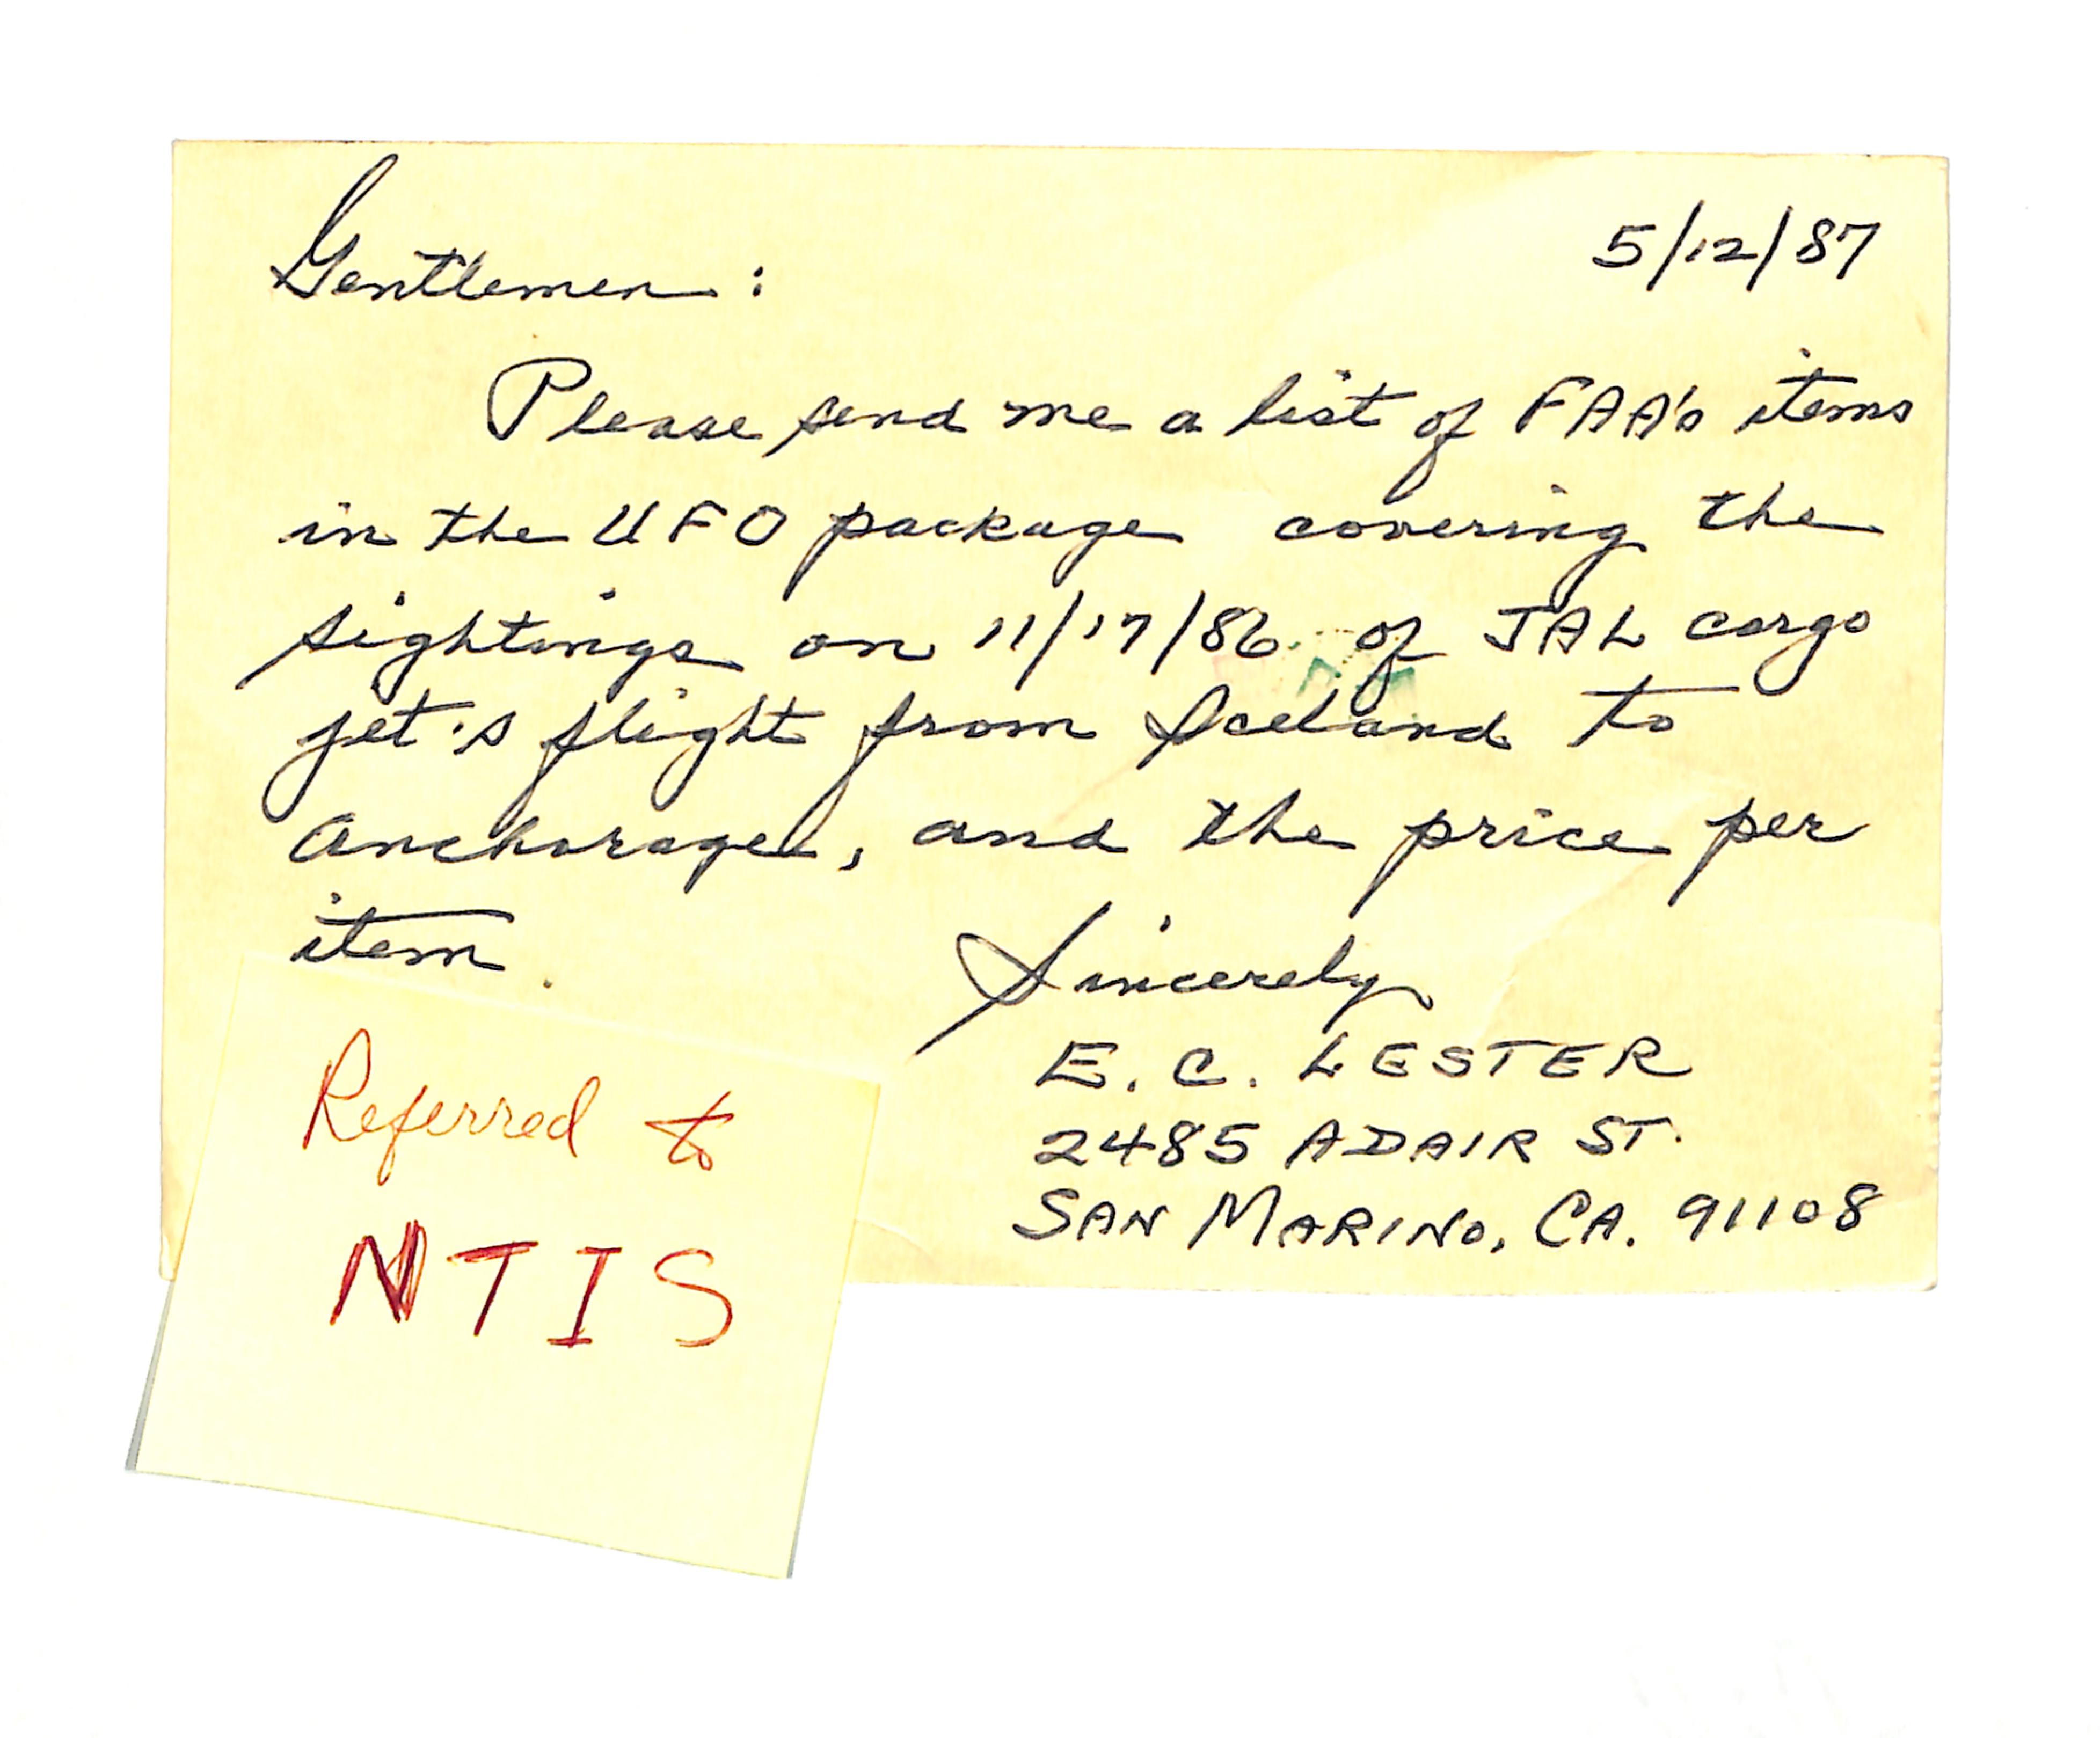 5/12/87
Gentlemen:
Please send me a list of FAA's items
in the UFO package covering the
sightings on 11/17/86 of JAL cargo
jet's flight from Iceland to
Anchorage, and the price per
item.
Sincerely
E. C. LESTER
2485 ADAIR ST.
SAN MARINO, CA. 91108
Referred to
NTIS